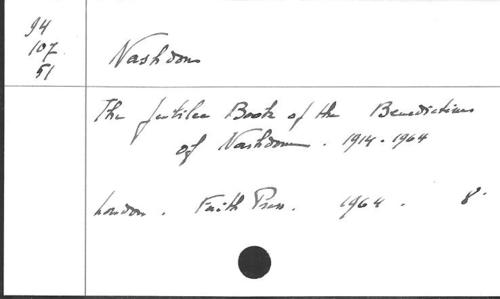 94
107
51
Nashdom
The Jubilee Book of the Benedictines
of Nashdom. 1914-1964
London. Faith Press. 1964. 8°